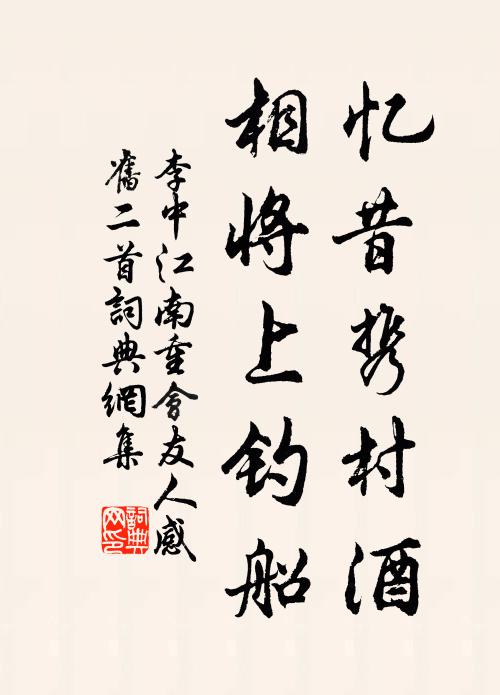 忆昔携村酒
相將上钓船
李中江南重會友人感
舊二首詞典網集
詞典
网印